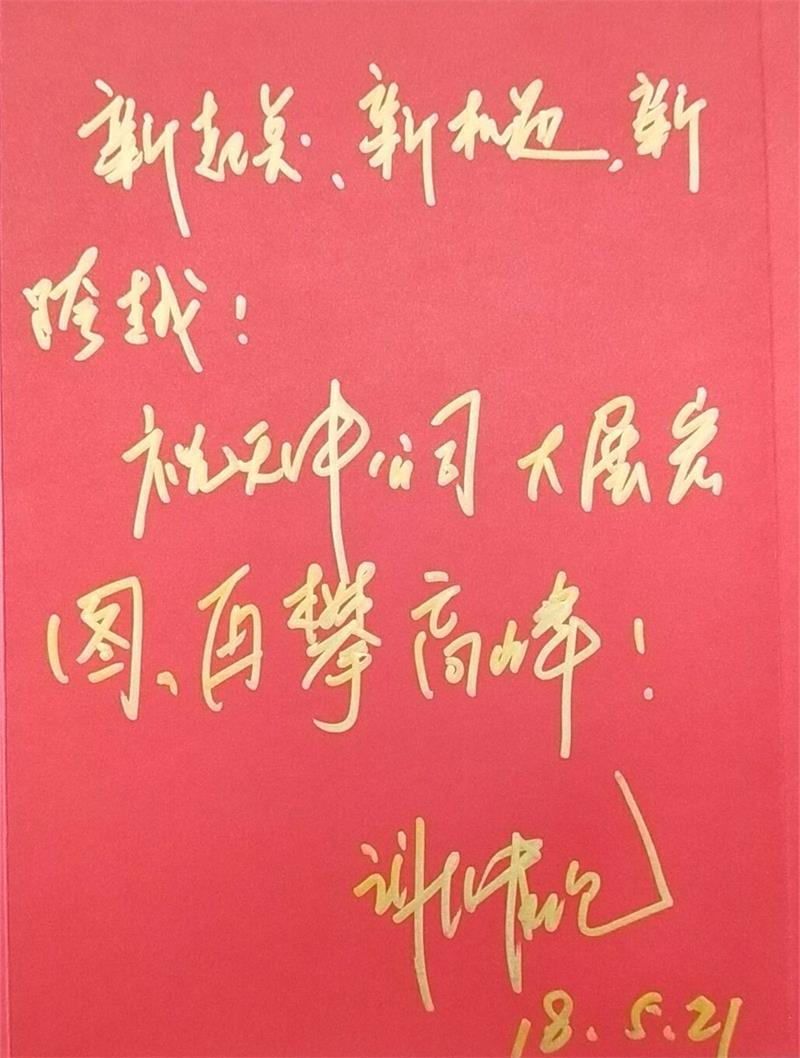 新起点、新机遇、新
跨越！
祝天中公司大展宏
图、再攀高峰！
18.5.21